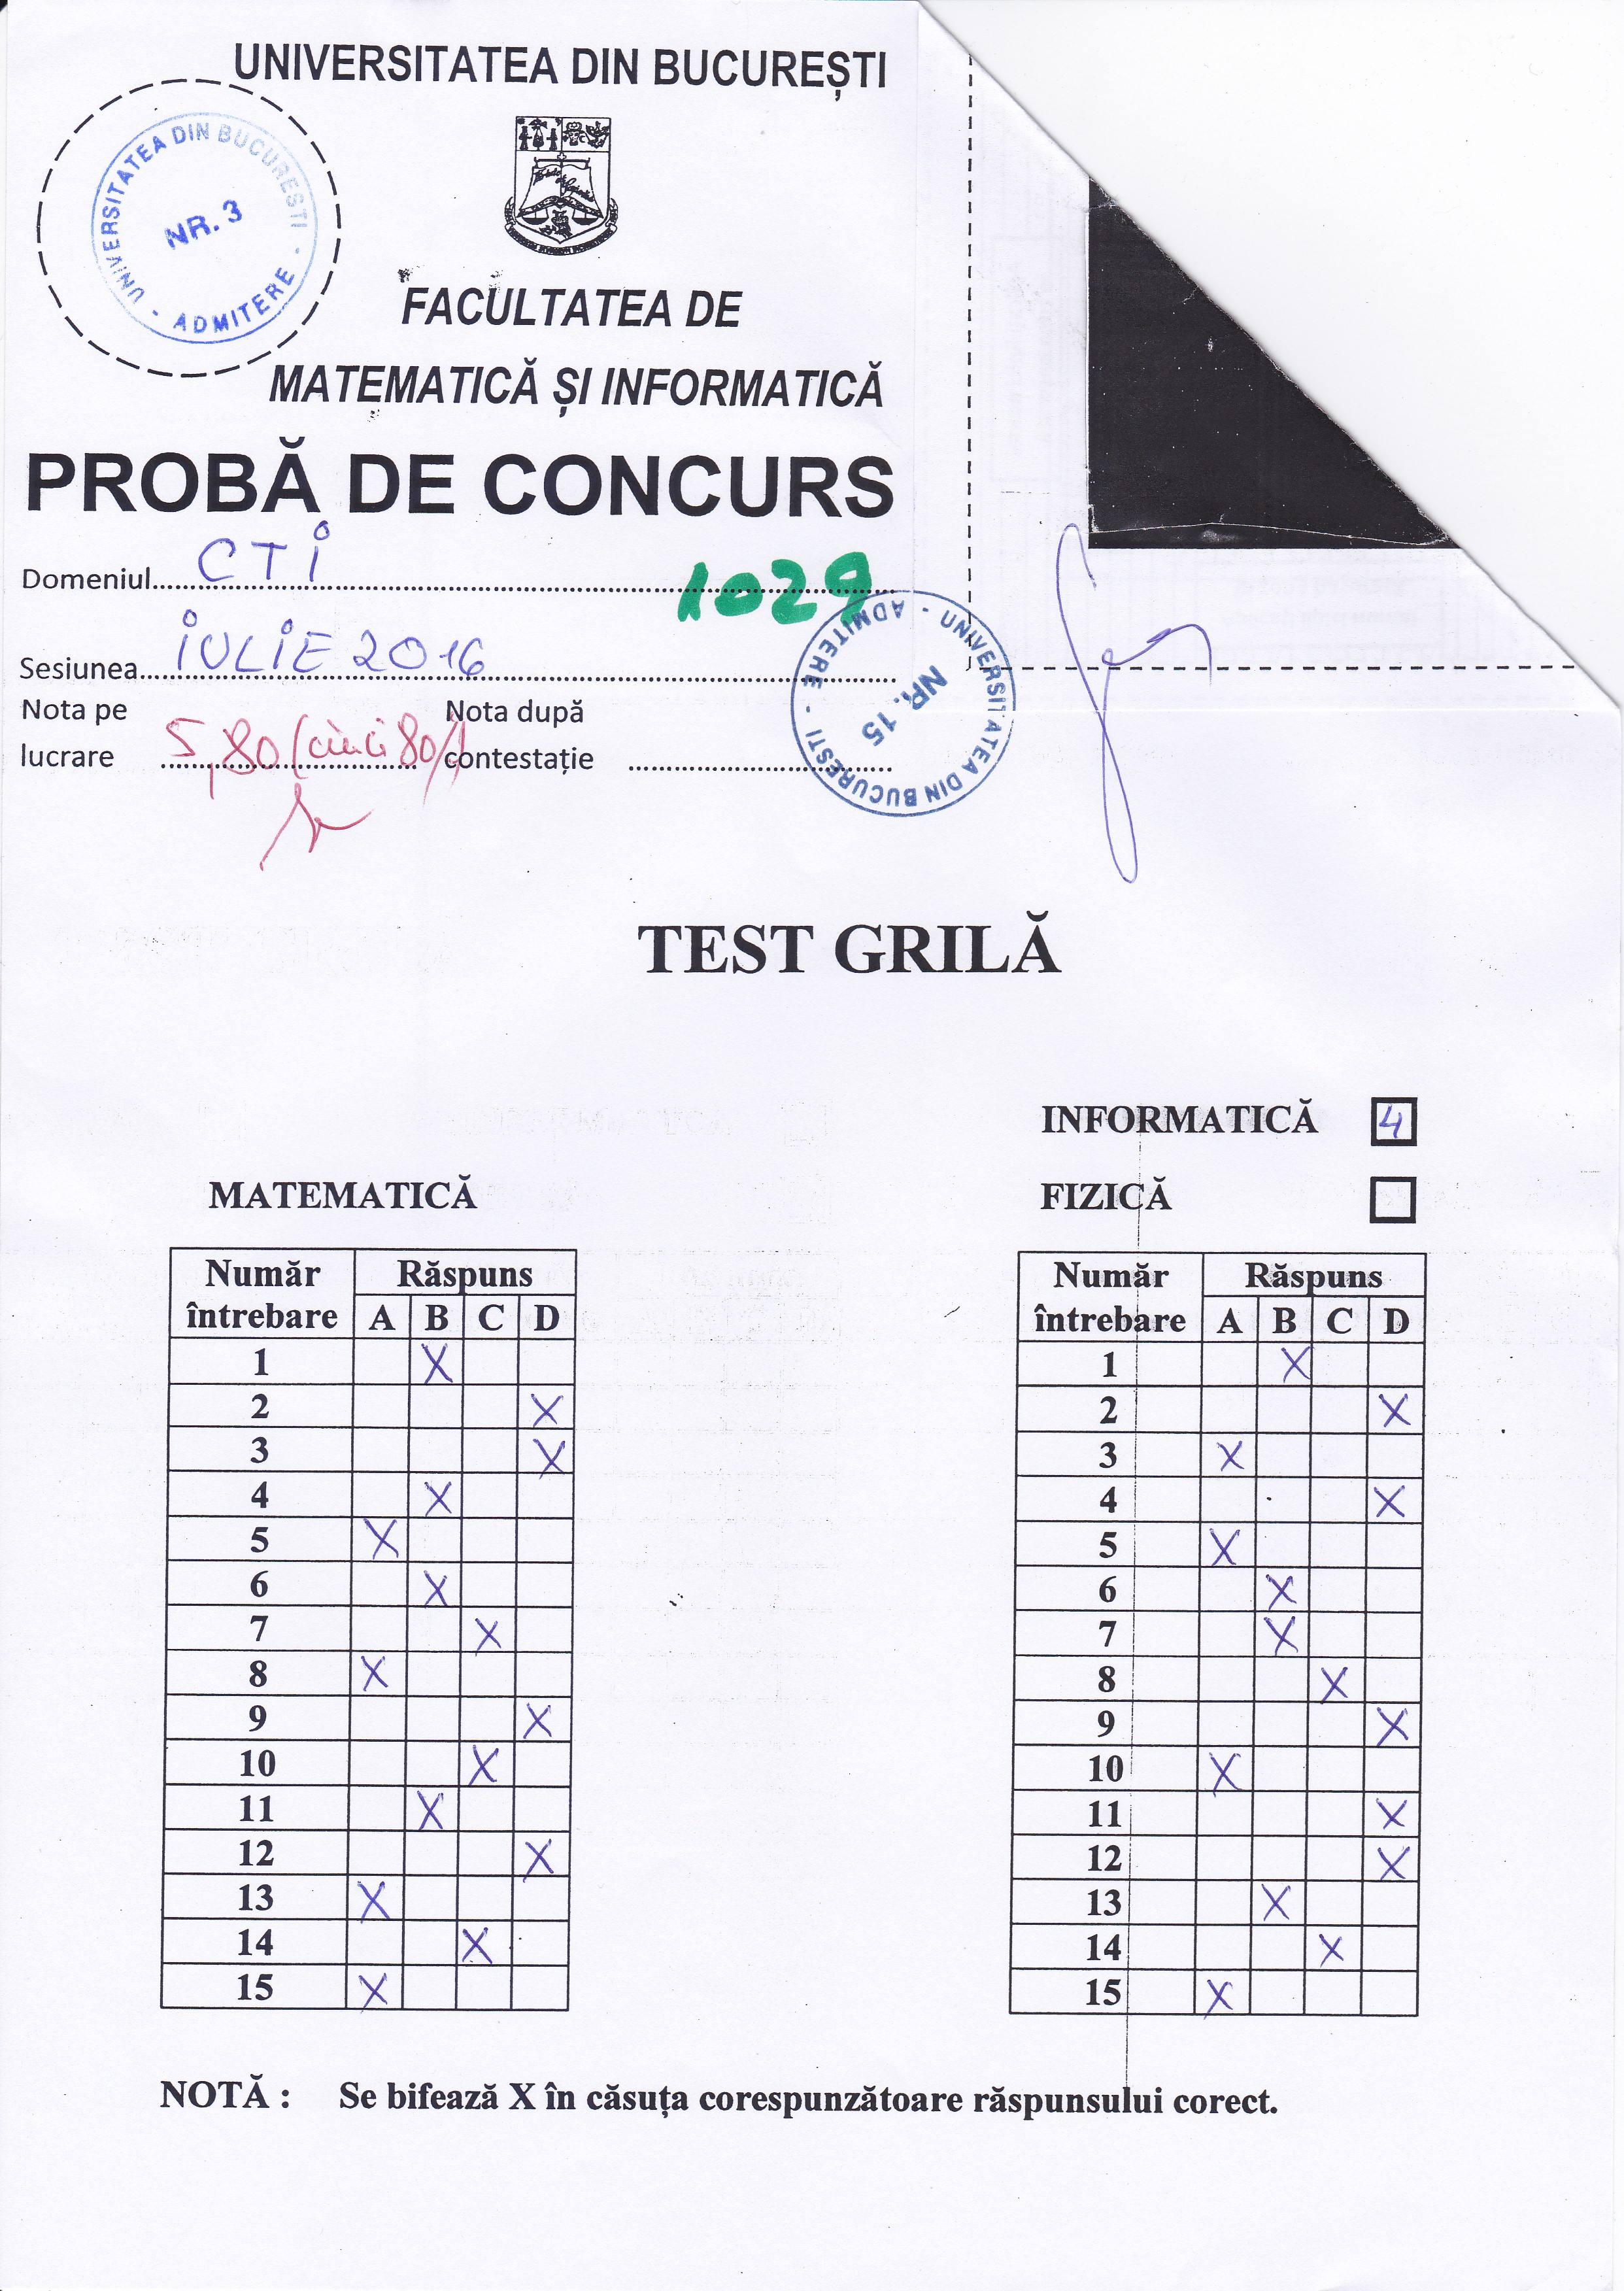 UNIVERSITATEA DIN BUCUREȘTI
UNIVERSITATEA DIN BUCURESTI - ADMITERE -
NR. 3
FACULTATEA DE
MATEMATICĂ ȘI INFORMATICĂ
PROBĂ DE CONCURS
Domeniul CTI 1029
Sesiunea IULIE 2016
Nota pe lucrare 5,80 (cinci 80/
Nota după contestație
UNIVERSITATEA DIN BUCURESTI - ADMITERE -
NR. 15
TEST GRILĂ
INFORMATICĂ 4
FIZICĂ
MATEMATICĂ
Număr întrebare Răspuns
A B C D
1 X
2 X
3 X
4 X
5 X
6 X
7 X
8 X
9 X
10 X
11 X
12 X
13 X
14 X
15 X
Număr întrebare Răspuns
A B C D
1 X
2 X
3 X
4 X
5 X
6 X
7 X
8 X
9 X
10 X
11 X
12 X
13 X
14 X
15 X
NOTĂ : Se bifează X în căsuța corespunzătoare răspunsului corect.